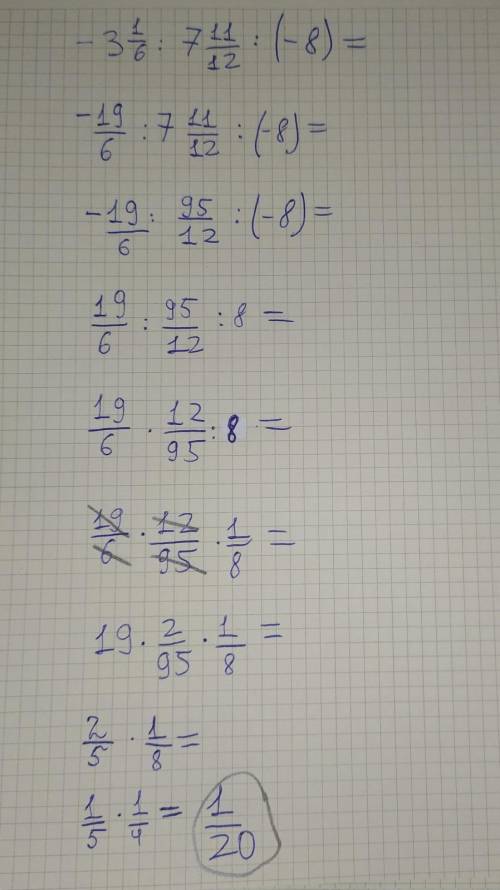 -3 1/6 : 7 11/12 : (-8) =
-19/6 : 7 11/12 : (-8) =
-19/6 : 95/12 : (-8) =
19/6 : 95/12 : 8 =
19/6 · 12/95 : 8 =
19/6 · 12/95 · 1/8 =
19 · 2/95 · 1/8 =
2/5 · 1/8 =
1/5 · 1/4 = 1/20